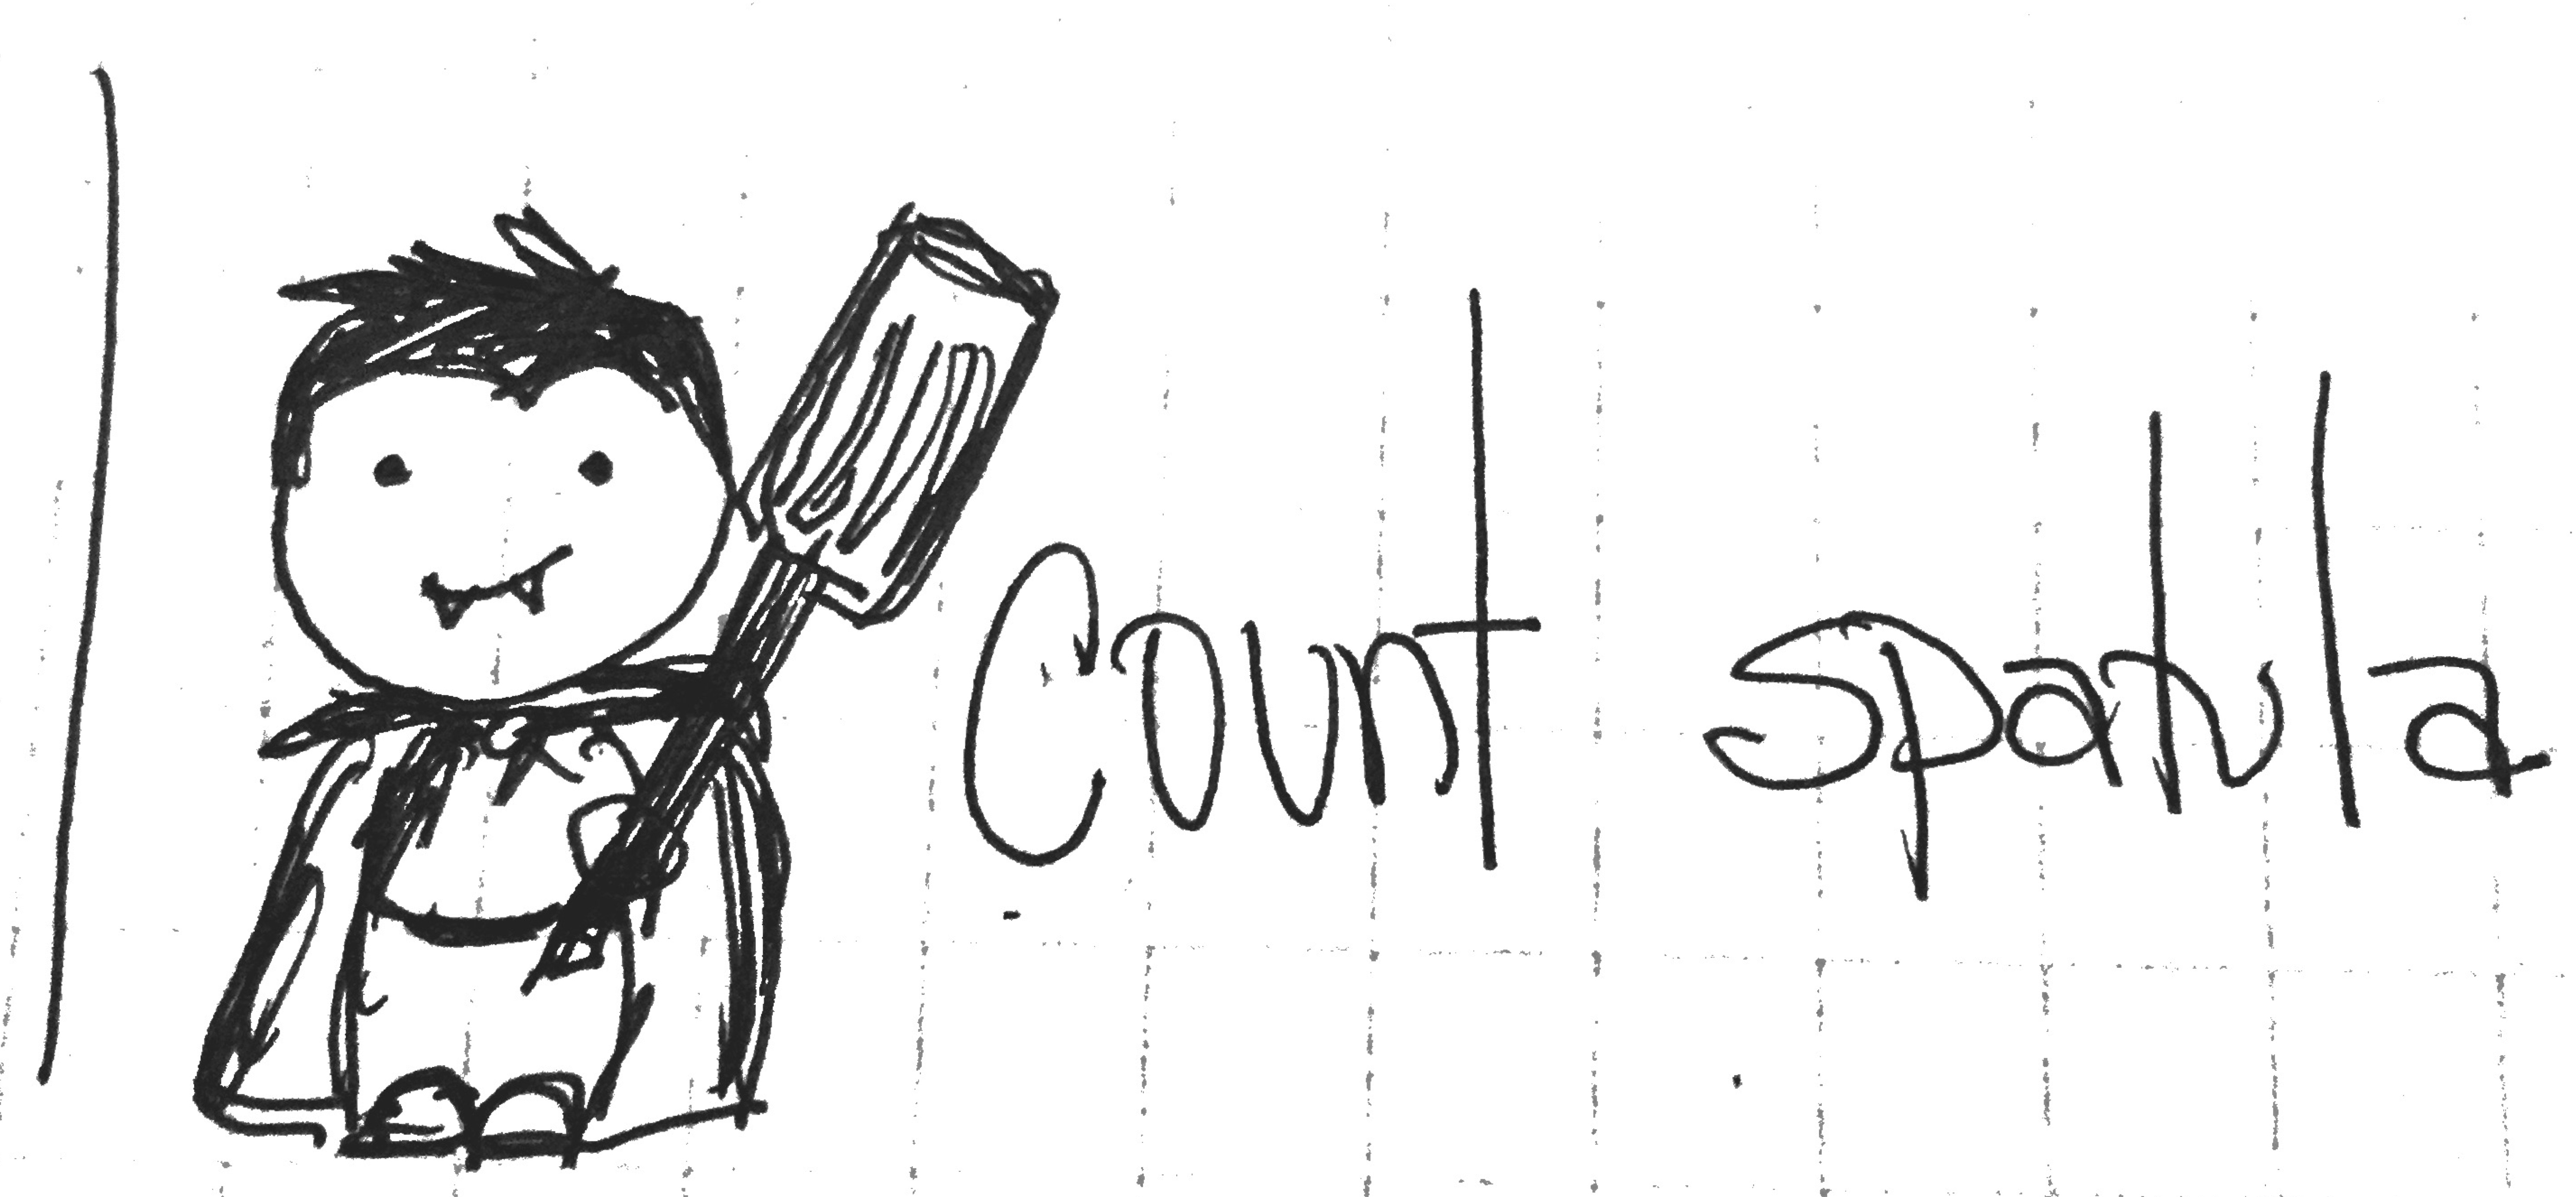 Count Spatula